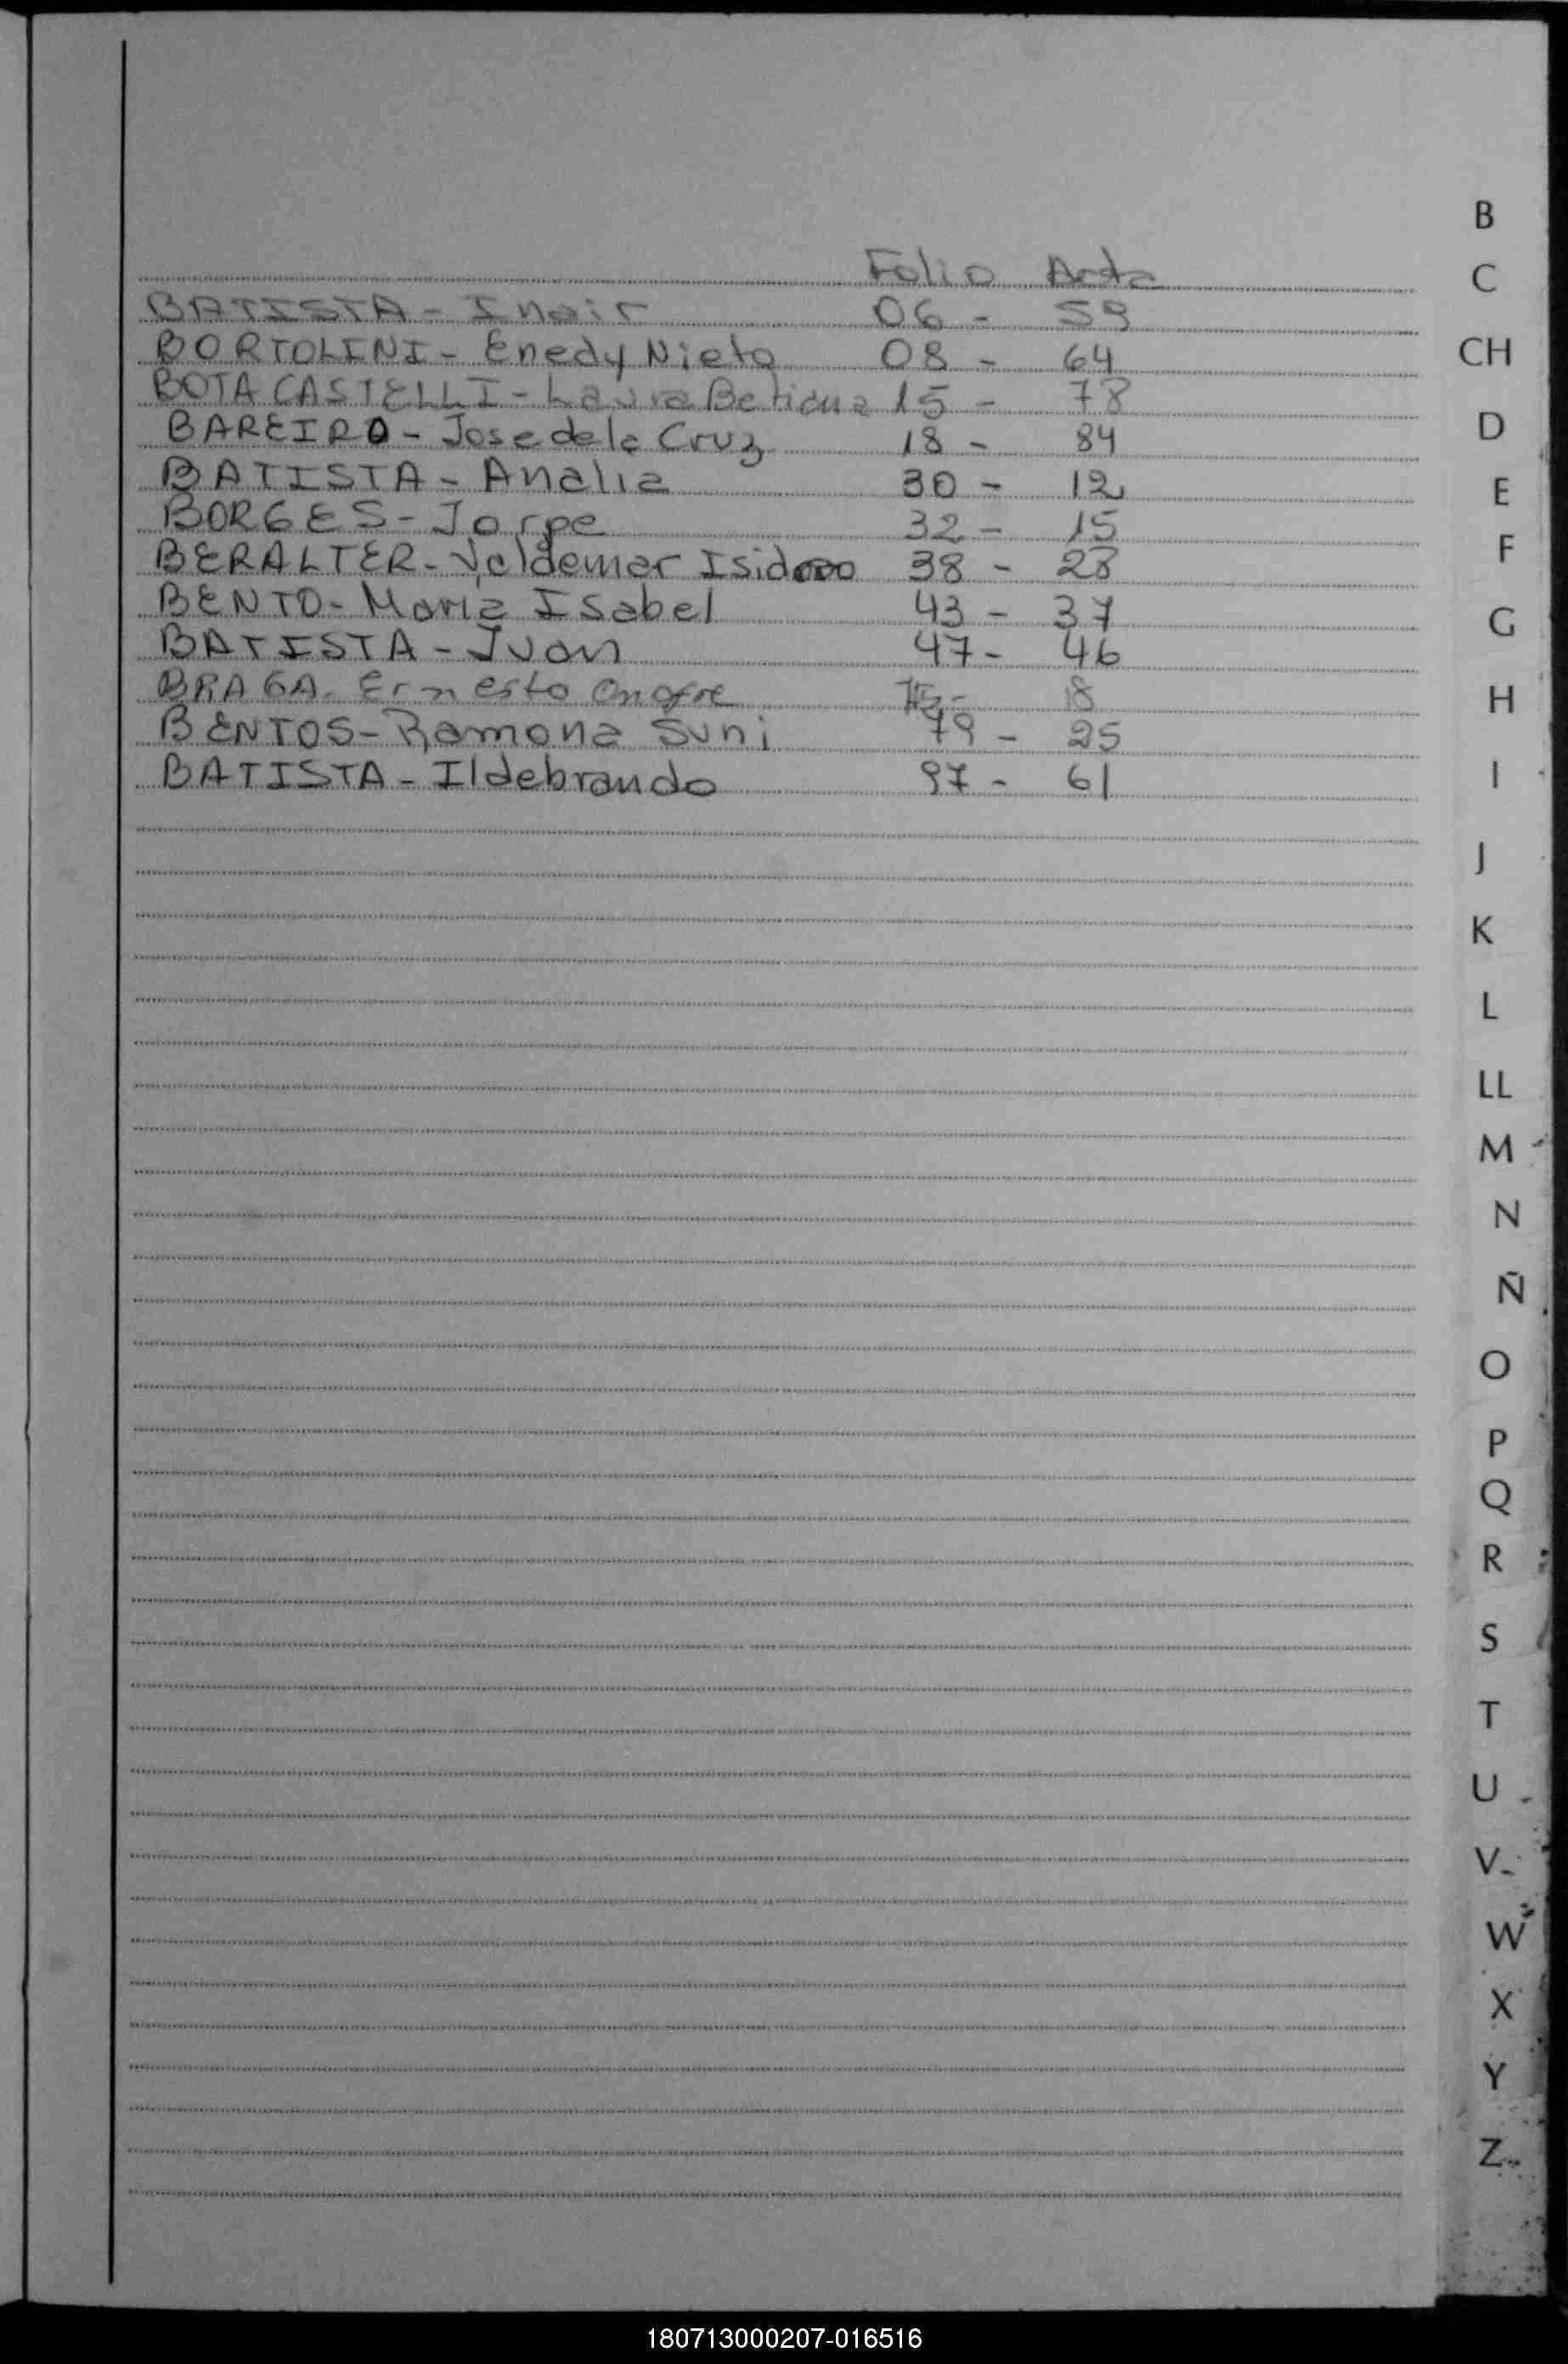 Folio Acta
BATISTA - Inair 06 - 59
BORTOLINI - Enedy Nieto 08 - 64
BOTA CASTELLI - Laura Betiana 15 - 78
BAREIRO - Jose de la Cruz 18 - 84
BATISTA - Analia 30 - 12
BORGES - Jorge 32 - 15
BERALTER - Valdemar Isidoro 38 - 28
BENTO - Maria Isabel 43 - 37
BATISTA - Juan 47 - 46
BRAGA - Ernesto Onofre 18
BENTOS - Ramona Suni 79 - 25
BATISTA - Ildebrando 97 - 61
B
C
CH
D
E
F
G
H
I
J
K
L
LL
M
N
Ñ
O
P
Q
R
S
T
U
V
W
X
Y
Z
180713000207-016516